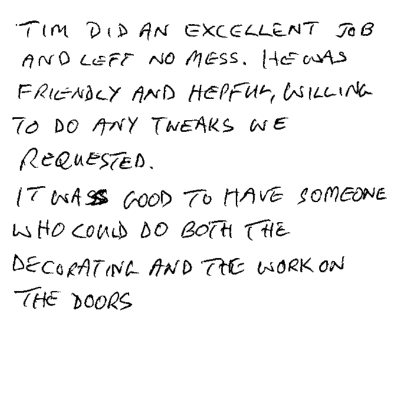 TIM DID AN EXCELLENT JOB
AND LEFT NO MESS. HE WAS
FRIENDLY AND HEPFUL, WILLING
TO DO ANY TWEAKS WE
REQUESTED.
IT WAS GOOD TO HAVE SOMEONE
WHO COULD DO BOTH THE
DECORATING AND THE WORK ON
THE DOORS